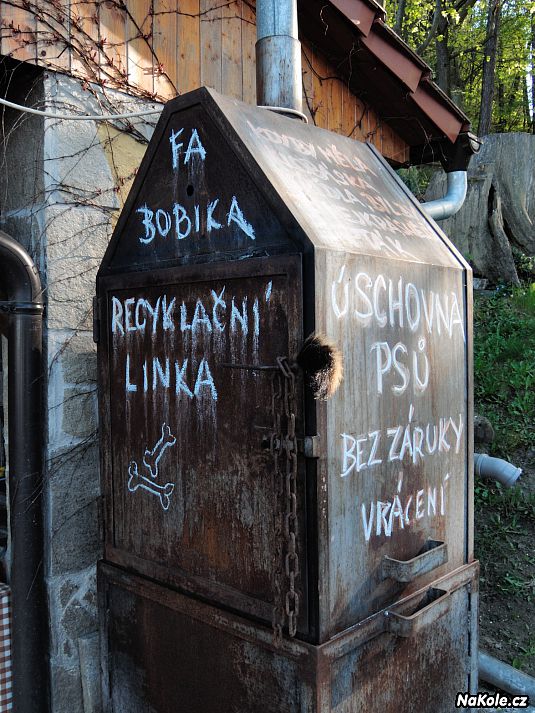 FA
BOBIKA
RECYKLAČNÍ
LINKA
KDYBY MĚLA
ÚSCHOVNA
PSŮ
BEZ ZÁRUKY
VRÁCENÍ
NaKole.cz